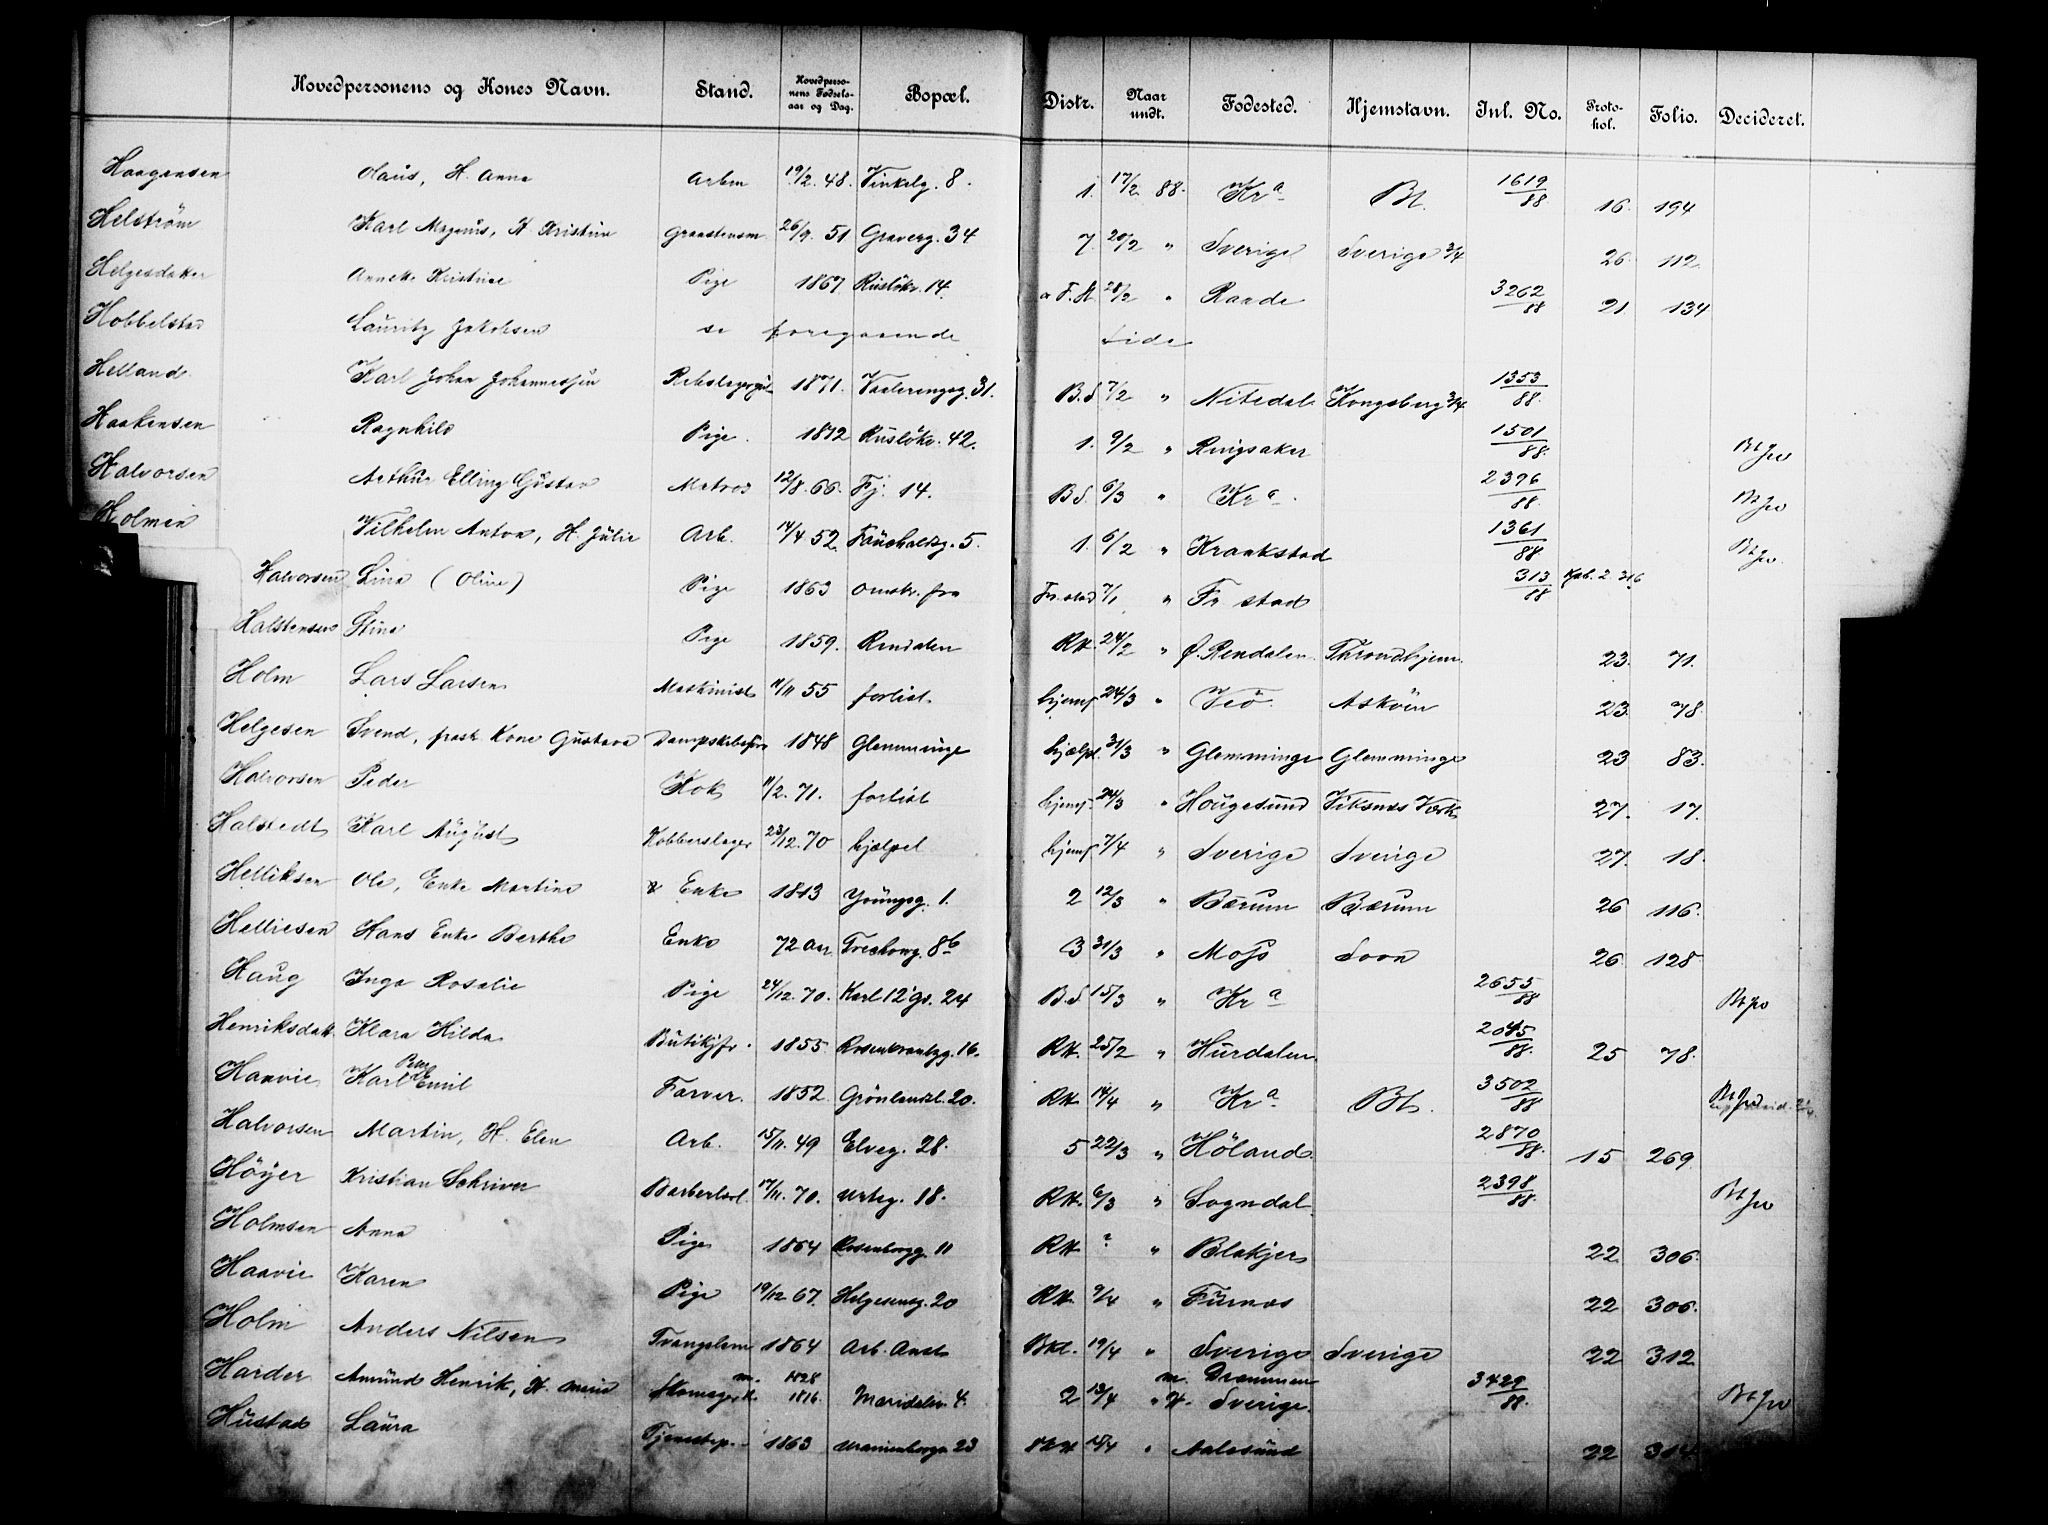 Hovedpersonens og Kones Navn. Stand. Hovedpersonens Fødselsaar og Dag. Bopæl. Distr. Naar undt. Fødested. Hjemstavn. Inl. No. Protokol. Folio. Decideret.
Haagensen Olaus, H. Anna Arbm 19/2. 48. Vinkelg. 8. 1. 17/2 88. Kra Bt. 1619/88 16. 194
Helström Karl Magnus, H Kristine Graastensm 26/9. 51 Graverg. 34 7. 20/2 " Sverige Sverige 3/4 26. 112.
Helgesdatter Annette Kristine Pige 1867 Rusløkv. 14. F. H. 28/2 " Raade 3262/88 21. 134
Hobbelstad Lauritz Jakobsen se foregaaende Side
Helland Karl Johan Johannessen 1871. Vaalerengg. 31. B.S 7/2 " Nitedal Kongsberg 3/4 1353/88.
Haakensen Ragnhild Pige. 1872 Rusløkv. 42. 1. 9/2 " Ringsaker 1501/88.
Halvorsen Arthur Elling Gustav Matros 12/8. 66. Fj. 14. B S. 6/3 " Kra. 2396/88.
Holmen Vilhelm Anton, H. Julie Arb. 14/4 52. Fauchaldsg. 5. 1. 6/2 " Kraakstad 1361/88
Halvorsen Lina (Oline) Pige 1863 omstr. fra Fr. stad 7/1 " Fr stad 313/88 Kpb. 2. 316
Halstensen Stine Pige 1859. Rendalen RH. 24/2 " Ø. Rendalen Throndhjem. 23. 71.
Holm Lars Larsen Maskinist 11/11 55 forlist. hjemf 24/3 " Veö Askvöen 23. 78.
Helgesen Svend, frask. Kone Gustava 1848 Glemminge hjælpl. 31/3 " Glemminge Glemminge 23 83.
Halvorsen Peder Kok 11/2. 71. forlist hjemf 24/3 " Haugesund Viksnes Værk 27. 17.
Halstedt Karl August Kobberslager 23/12. 70 hjælpel hjemf 7/4 " Sverige Sverige 27. 18.
Helliksen Ole, Enke Martine Enke 1813 Youngsg. 1. 2 12/3 " Bærum Bærum 26 116.
Hellresen Hans Enke Berthe Enke 72 Aar Treshovg. 8b 3 31/3 " Moss Soon 26. 128.
Haug Inga Rosalie Pige 24/12. 70. Karl 12's. 24 B.S 15/3 " Kra 2655/88
Henriksdatt. Klara Hilda Butikjfr. 1855 Rosenkrantzg. 16. RH. 25/2 " Hurdalen 2045/88. 25 78.
Haavie Karl Emil Farver. 1852. Grönlandsl. 20. RH 14/4 " Kra. Bt. 3502/88
Halvorsen Martin, H. Elen Arb. 15/11. 49 Elveg. 28. 5 22/3 " Höland. 2870/88. 15 269
Höyer Kristian Schriver Barberlærl. 17/11. 70. Urteg. 18. RH. 6/3 " Sogndal 2398/88.
Holmsen Anna Pige 1864 Rosenborgg. 11 RH. ? " Blakjer 22 306.
Haavie Karen Pige 19/12 67. Helgesensg. 20 RH. 9/4 " Furnæs 22 306.
Holm Anders Nilsen Tvangslem 1864 Arb. Anst. Bkl. 19/4 " Sverige Sverige 22 312.
Harder Amund Henrik, H. Marie Skomager m. 1828 H. 1816. Maridalsv. 4. 2 13/4 " m. Drammen H. Sverige. 3429/88.
Hustad Laura Tjenestep. 1863 Uranienborgv. 23 RH 15/4 " Aalesund 22 314